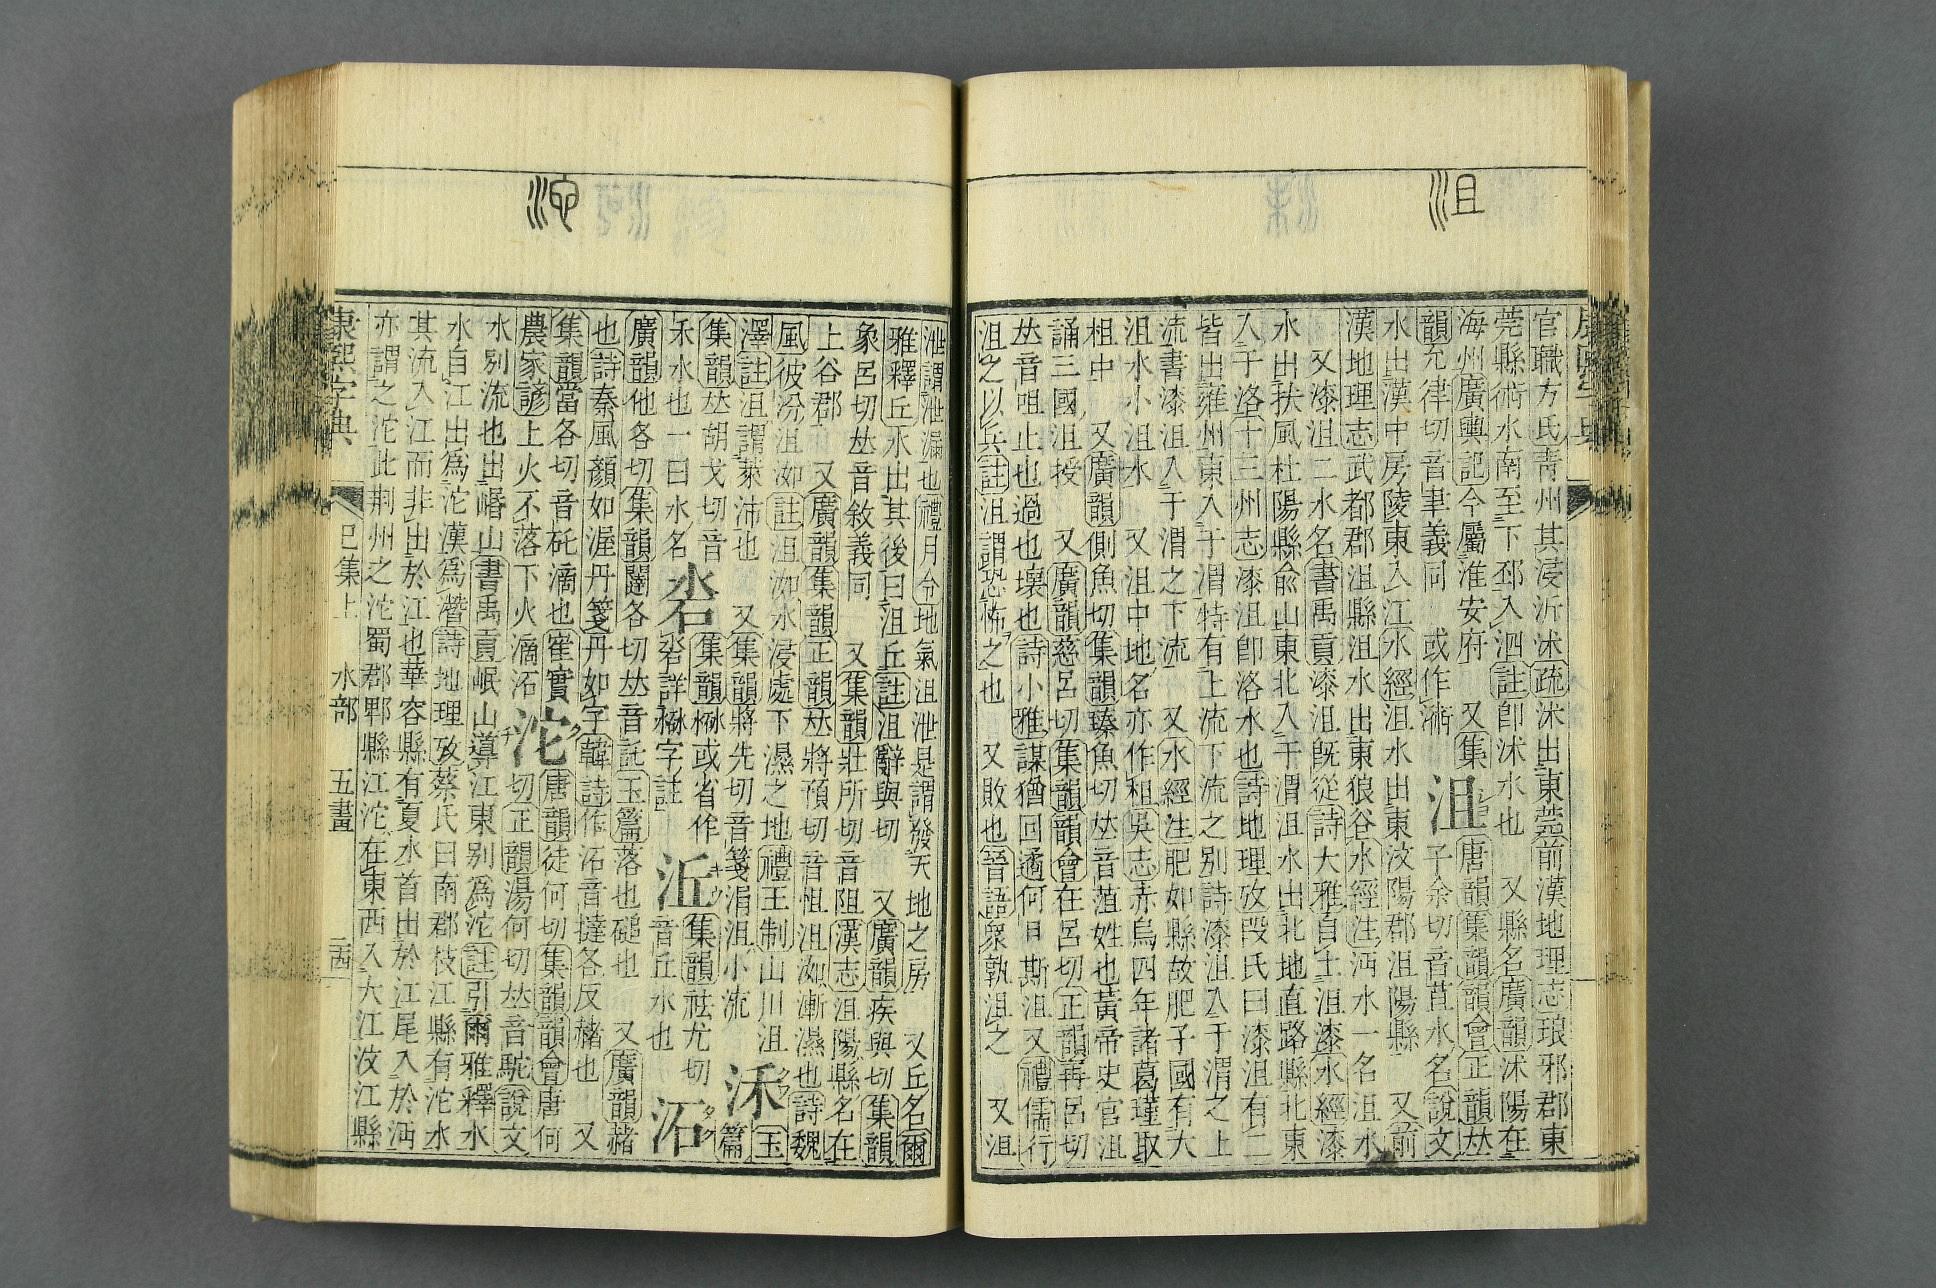 沮
官職方氏靑州其浸沂沭疏沭出東莞前漢地理志琅邪郡東
莞縣術水南至下邳入泗註卽沭水也　又縣名廣韻沭陽在
海州廣輿記今屬淮安府　又集
韻允律切音聿義同　或作術
沮
唐韻集韻韻會正韻𠀤
子余切音苴水名說文
水出漢中房陵東入江水經沮水出東汶陽郡沮陽縣　又前
漢地理志武都郡沮縣沮水出東狼谷水經注沔水一名沮水
又漆沮二水名書禹貢漆沮旣從詩大雅自土沮漆水經漆
水出扶風杜陽縣兪山東北入于渭沮水出北地直路縣北東
入于洛十三州志漆沮卽洛水也詩地理攷段氏曰漆沮有二
皆出雍州東入于渭特有上流下流之別詩漆沮入于渭之上
流書漆沮入于渭之下流　又水經注肥如縣故肥子國有大
沮水小沮水　又沮中地名亦作柤吳志赤烏四年諸葛瑾取
柤中　又廣韻側魚切集韻臻魚切𠀤音菹姓也黃帝史官沮
誦三國沮授　又廣韻慈呂切集韻韻會在呂切正韻再呂切
𠀤音咀止也過也壞也詩小雅謀猶回遹何日斯沮又禮儒行
沮之以兵註沮謂恐怖之也　又敗也晉語衆孰沮之　又沮
泄謂泄漏也禮月令地氣沮泄是謂發天地之房　又丘名爾
雅釋丘水出其後曰沮丘註沮辭與切　又廣韻疾與切集韻
象呂切𠀤音敘義同　又集韻壯所切音阻漢志沮陽縣名在
上谷郡　又廣韻集韻正韻𠀤將預切音怚沮洳漸濕也詩魏
風彼汾沮洳註沮洳水浸處下濕之地禮王制山川沮
澤註沮謂萊沛也　又集韻將先切音箋涓沮小流
㳅
玉篇
集韻𠀤胡戈切音
禾水也一曰水名
沯
集韻㵧或省作
沯詳㵧字註
㳋
集韻祛尤切
音丘水也
沰
廣韻他各切集韻闥各切𠀤音託玉篇落也磓也　又廣韻赭
也詩秦風顏如渥丹箋丹如字韓詩作沰音撻各反赭也　又
集韻當各切音矺滴也崔實
農家諺上火不落下火滴沰
沱
唐韻徒何切集韻韻會唐何
切正韻湯何切𠀤音駝說文
水別流也出㟭山書禹貢岷山導江東別爲沱註引爾雅釋水
水自江出爲沱漢爲潛詩地理攷蔡氏曰南郡枝江縣有沱水
其流入江而非出於江也華容縣有夏水首出於江尾入於沔
亦謂之沱此荆州之沱蜀郡郫縣江沱在東西入大江汶江縣
康熙字典　巳集上　水部　五畫